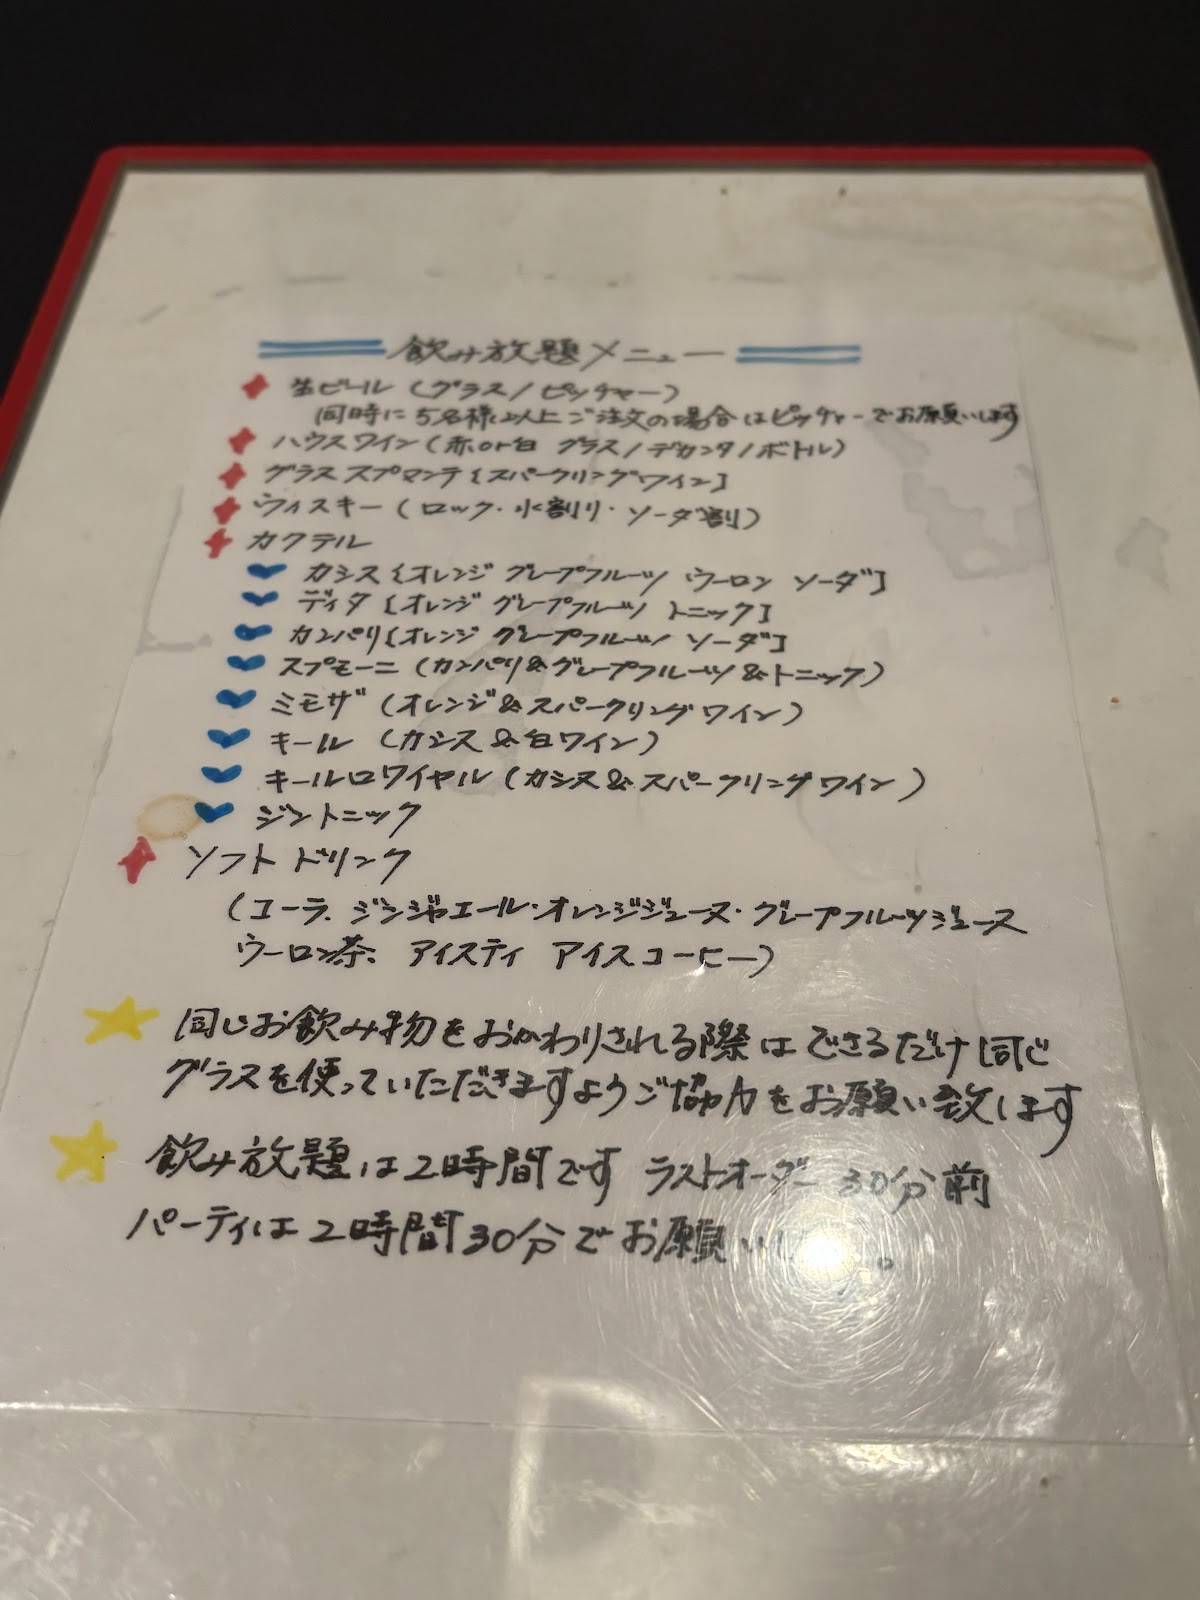 飲み放題メニュー
生ビール (グラス/ピッチャー)
同時に5名様以上ご注文の場合はピッチャーでお願いします
ハウスワイン(赤or白 グラス/デカンタ/ボトル)
グラス スプマンテ[スパークリングワイン]
ウィスキー(ロック・水割り・ソーダ割)
カクテル
カシス[オレンジ グレープフルーツ ウーロン ソーダ]
ディタ[オレンジ グレープフルーツ トニック]
カンパリ[オレンジ グレープフルーツ ソーダ]
スプモーニ (カンパリ&グレープフルーツ&トニック)
ミモザ (オレンジ&スパークリングワイン)
キール (カシス&白ワイン)
キールロワイヤル (カシス&スパークリングワイン)
ジントニック
ソフトドリンク
(コーラ、ジンジャエール・オレンジジュース・グレープフルーツジュース
ウーロン茶、アイスティ アイスコーヒー)
同じお飲み物をおかわりされる際はできるだけ同じ
グラスを使っていただきますようご協力をお願い致します
飲み放題は2時間です ラストオーダー 30分前
パーティは2時間30分でお願いします。